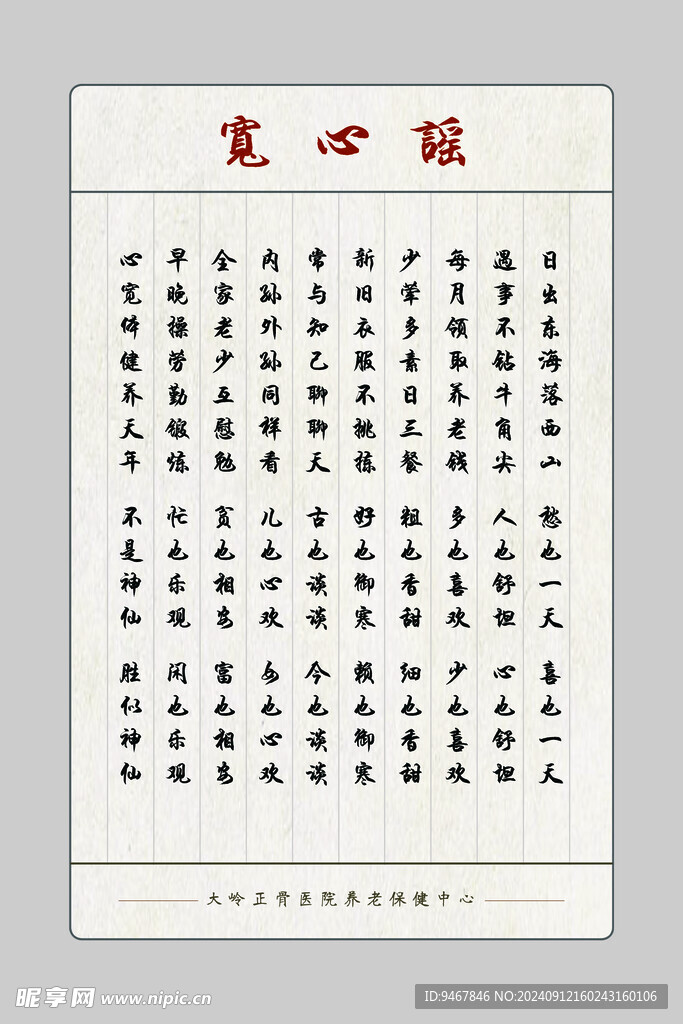 寬心謡
日出东海落西山 愁也一天 喜也一天
遇事不钻牛角尖 人也舒坦 心也舒坦
每月领取养老钱 多也喜欢 少也喜欢
少荤多素日三餐 粗也香甜 细也香甜
新旧衣服不挑拣 好也御寒 赖也御寒
常与知己聊聊天 古也谈谈 今也谈谈
内孙外孙同样看 儿也心欢 女也心欢
全家老少互慰勉 贫也相安 富也相安
早晚操劳勤锻炼 忙也乐观 闲也乐观
心宽体健养天年 不是神仙 胜似神仙
大岭正骨医院养老保健中心
昵享网 www.nipic.cn
ID:9467846 NO:20240912160243160106